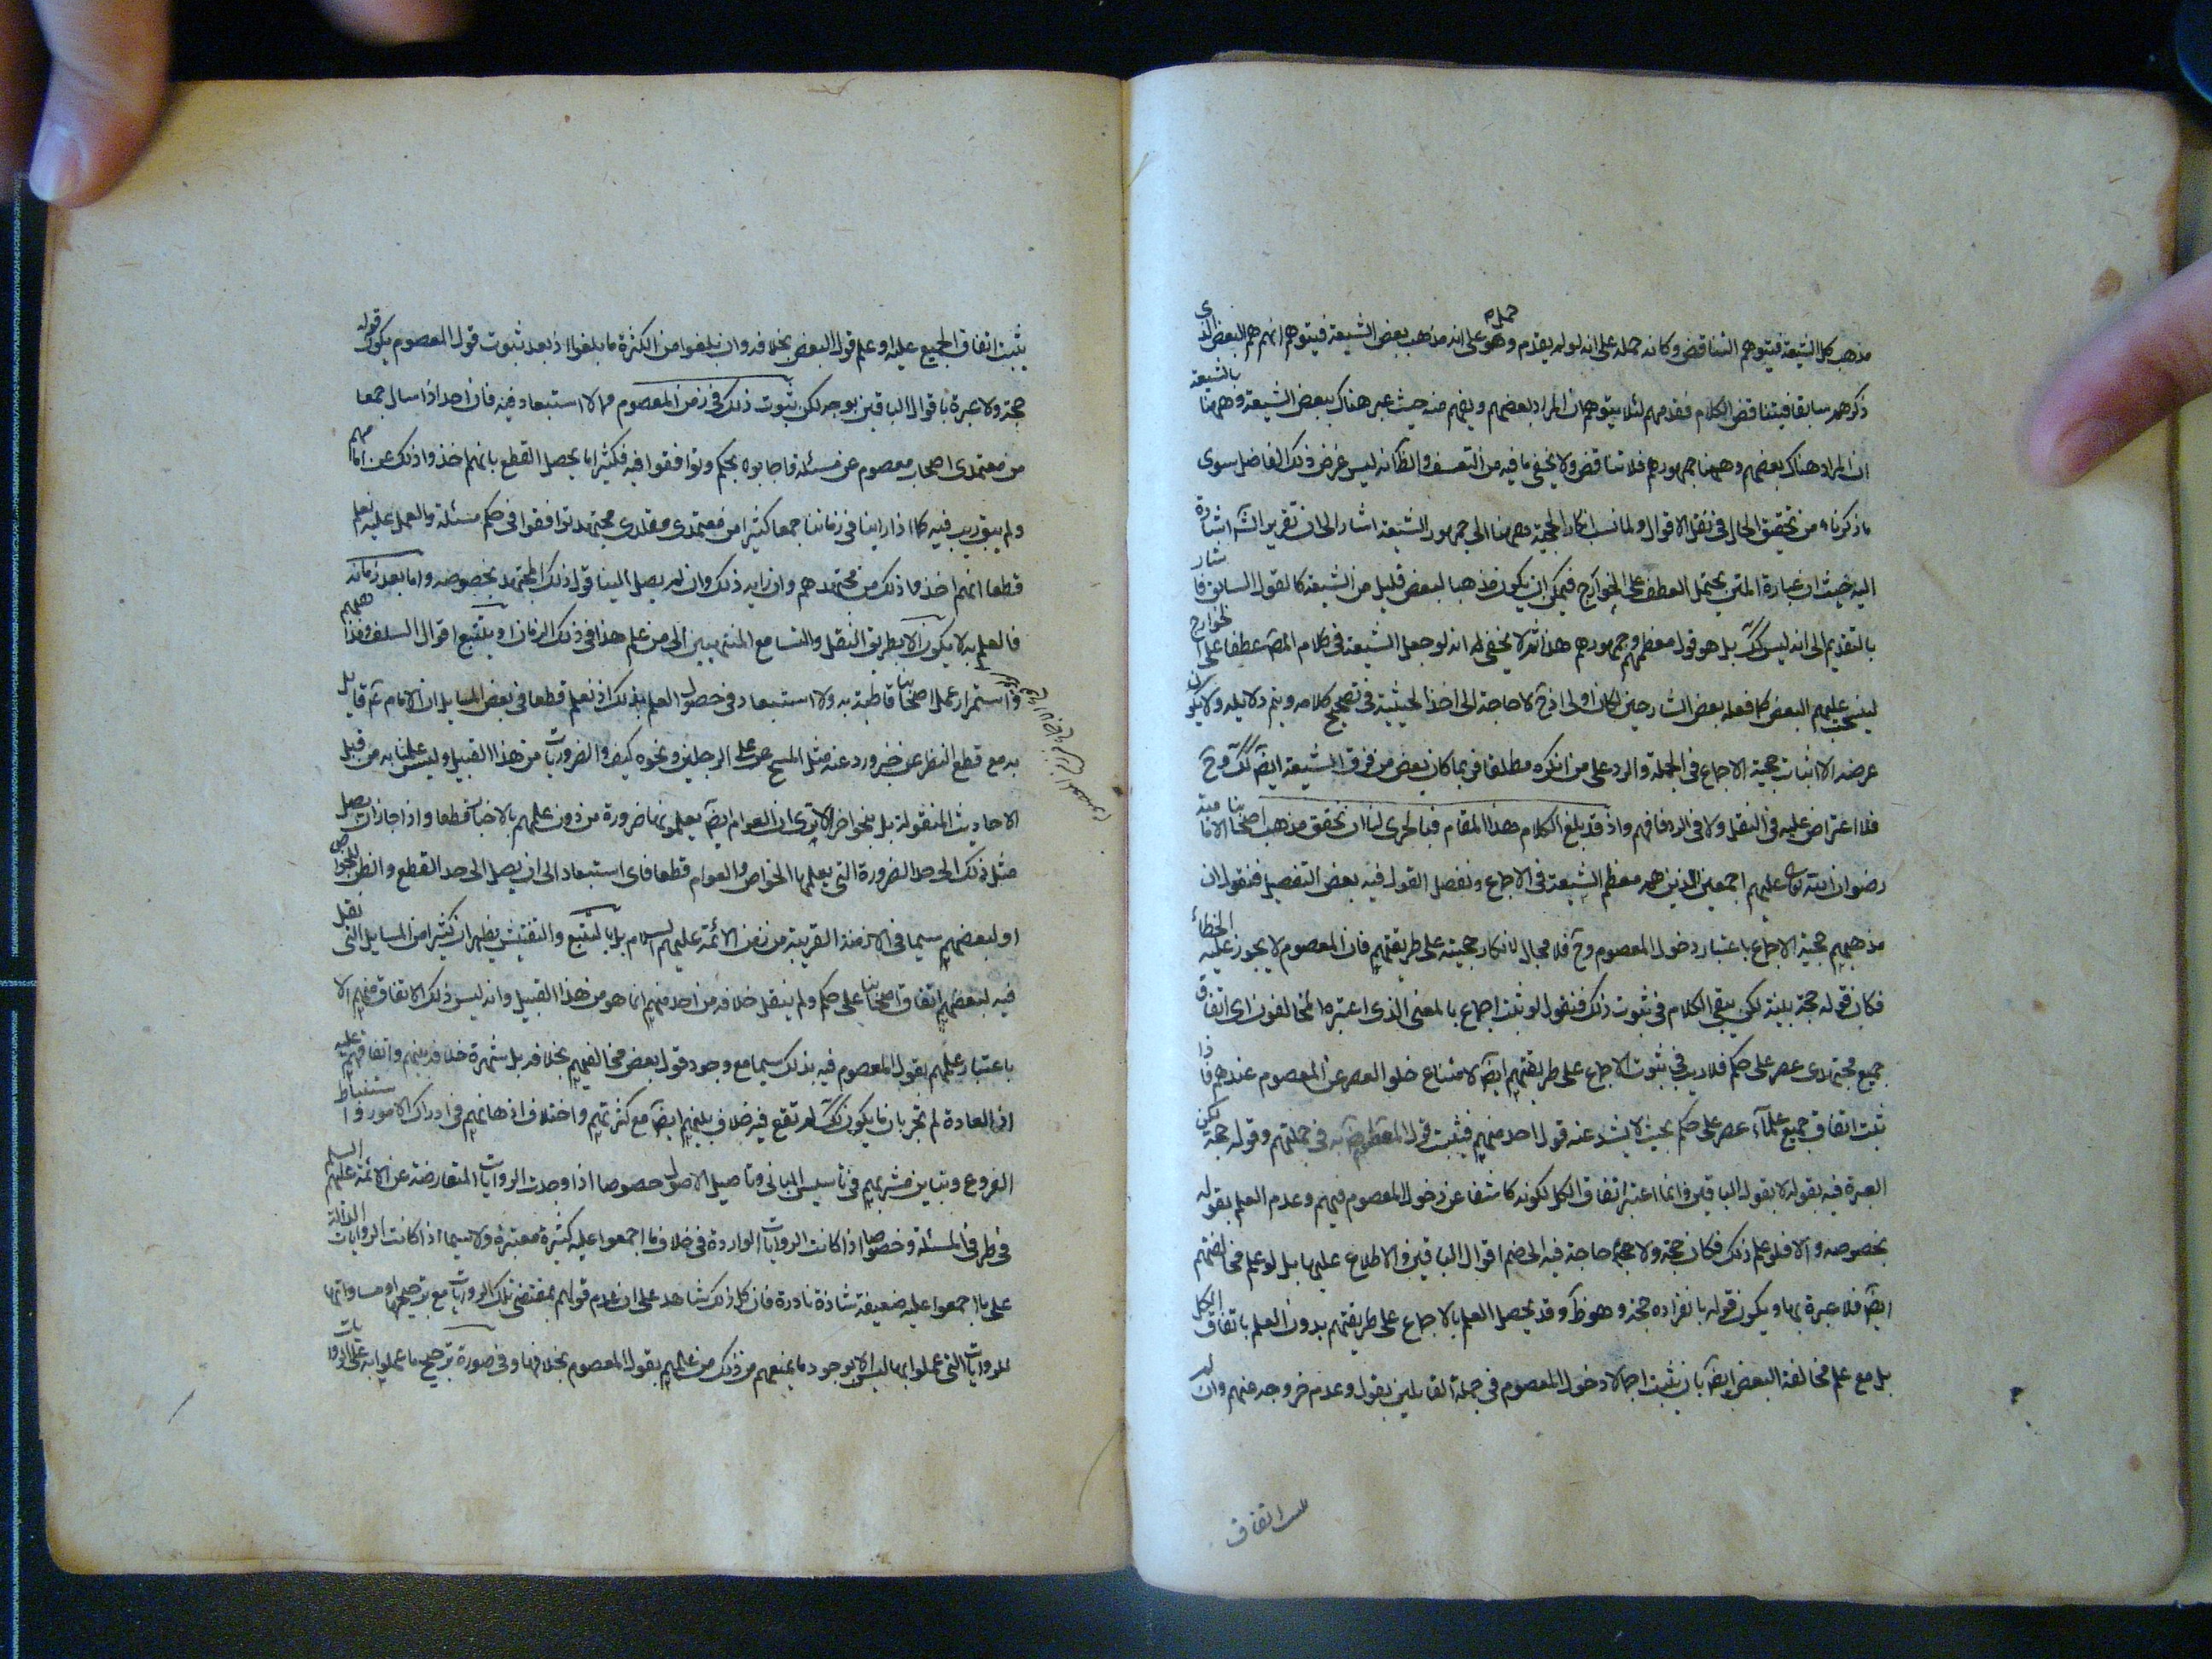 مذهب كل الشيعة فيتوهم التناقض وكانه حمله على انه لو لم يقدم وهو حمله على انه مذهب بعض الشيعة فيتوهم انهم هم البعض الذى
ذكرهم سابقا فيتناقض الكلام فقدمهم لئلا يتوهم ان المراد بعضهم ويفهم منه حيث عبر هناك ببعض الشيعة وههنا بالشيعة
ان المراد هناك بعضهم وههنا جمهورهم فلا تناقض ولا يخفى ما فيه من التعسف والظ انه ليس غرض ذلك الفاضل سوى
ما ذكرناه من تحقيق الحال فى نقل الاقوال ولما نسب انكار الحجية ههنا الى جمهور الشيعة اشار الى ان تقرير الش اشارة
اليه حيث ان عبارة المتن يحتمل العطف على الخوارج فيمكن ان يكون مذهبا لبعض قليل من الشيعة كالقول السابق فاشار
بالتقديم الى انه ليس كك بل هو قول معظمهم وجمهورهم هذا ثم لا يخفى انه لو جعل الشيعة فى كلام المص عطفا على الخوارج
لينسحب عليهم البعض كما فعله بعض الشارحين لكان اولى اذ ح لا حاجة الى اخذ الحيثية فى تصحيح كلامه ويتم دلايله ولا يكون
غرضه الا اثبات حجية الاجماع فى الجملة والرد على من انكره مطلقا فربما كان بعض من فرق الشيعة ايض كك وح
فلا اعتراض عليه فى النقل ولا فى الرد فافهم واذ قد بلغ الكلام هذا المقام فبالحرى لنا ان نحقق مذهب اصحابنا الامامية
رضوان الله تعالى عليهم اجمعين الذين هم معظم الشيعة فى الاجماع ونفصل القول فيه بعض التفصيل فنقول ان
مذهبهم حجية الاجماع باعتبار دخول المعصوم وح فلا مجال لانكار حجيته على طريقتهم فان المعصوم لا يجوز عليه الخطأ
فكان قوله حجة بينة لكن يبقى الكلام فى ثبوت ذلك فنقول لو ثبت اجماع بالمعنى الذى اعتبره المخالفون اى اتفاق
جميع مجتهدى عصر على حكم فلا ريب فى ثبوت الاجماع على طريقتهم ايض لامتناع خلو العصر عن المعصوم عندهم فاذا
ثبت اتفاق جميع علماء عصر على حكم بحيث لا يشذ عنه قول احد منهم فيثبت قول المعصوم به فى جملتهم وقوله حجة لكن
العبرة فيه بقوله لا بقول الباقين وانما اعتبر اتفاق الكل لكونه كاشفا عن دخول المعصوم فيهم وعدم العلم بقوله
بخصوصه والا فلو علم ذلك فكان حجة ولا حاجة فيه الى ضم اقوال الباقين والاطلاع عليها بل لو علم مخالفتهم
ايض فلا عبرة بها ويكون قوله بانفراده حجة وهو ظ وقد يحصل العلم بالاجماع على طريقتهم بدون العلم باتفاق الكل
بل مع علم مخالفة البعض ايض بان يثبت اجمالا دخول المعصوم فى جملة القايلين بقول وعدم خروجه منهم وان لم
يثبت اتفاق
يثبت اتفاق الجميع عليه او علم قول البعض بخلافه وان بلغوا من الكثرة ما بلغوا اذ بعد ثبوت قول المعصوم يكون قوله
حجة ولا عبرة باقوال الباقين بوجه لكن ثبوت ذلك فى زمن المعصوم مما لا استبعاد فيه فان احدا اذا سال جمعا
من معتمدى اصحاب معصوم عن مسئلة فاجابوه بحكم وتوافقوا فيه فكثيرا ما يحصل القطع بانهم اخذوا ذلك عن امامهم
ولم يبق ريب فيه كما اذا راينا فى زماننا جمعا كثيرا من معتمدى مقلدى مجتهد توافقوا فى حكم مسئلة والعمل عليه نعلم
قطعا انهم اخذوا ذلك من مجتهدهم وان رايه ذلك وان لم يصل الينا قول ذلك المجتهد بخصوصه واما بعد زمانه
فالعلم به لا يكون الا بطريق النقل والتسامع المنتهيين الى من علم هذا فى ذلك الزمان او بتتبع اقوال السلف
واستمرار عمل اصحابنا قاطبة به ولا استبعاد فى حصول العلم بذلك اذ نعلم قطعا فى بعض المسايل ان الامام ع قايل
به مع قطع النظر عن خبر ورد عنه مثل المسح على الرجلين ونحوه كيف والضروريات من هذا القبيل وليس علمنا به من قبل
الاحاديث المنقولة بل بنحو اخر الا ترى ان العوام ايض يعلمونها ضرورة من دون علمهم بالاخبار قطعا واذا جاز ان يصل
مثل ذلك الى حد الضرورة التى يعلمها الخواص والعوام قطعا فاى استبعاد الى ان يصل الى حد القطع والظن للخواص
او لبعضهم سيما فى الازمنة القريبة من زمن الائمة عليهم السلام بل بالتتبع والتفتيش يظهر ان كثيرا من المسايل التى نقل
فيه لبعضهم اتفاق اصحابنا على حكم ولم ينقل خلافه من احد منهم انما هو من هذا القبيل وانه ليس ذلك الاتفاق منهم الا
باعتبار علمهم بقول المعصوم فيه بذلك سيما مع وجود قول بعض مخالفيهم بخلافه بل شهرة خلافه بينهم واتفاقهم عليه
اذ العادة لم تجر بان ما يكون كك لم تقع فيه خلاف بينهم ايض مع كثرتهم واختلاف اذهانهم فى ادراك الامور واستنباط
الفروع وتباين مشربهم فى تاسيس المبانى وتاصيل الاصول خصوصا اذا وجدت الروايات المتعارضة عن الائمة عليهم السلم
فى طرفى المسئلة وخصوصا اذا كانت الروايات الواردة فى خلاف ما اجمعوا عليه كثيرة معتبرة ولا سيما اذا كانت الروايات الدالة
على ما اجمعوا عليه ضعيفة شاذة نادرة فان كل ذلك شاهد على ان عدم قولهم بمقتضى تلك الروايات مع ترجيحها او مساواتها
للروايات التى عملوا بها ليس الا لوجود ما يمنعهم من ذلك من علمهم بقول المعصوم بخلافها وفى صورة ترجيح ما عملوا به على الروايات